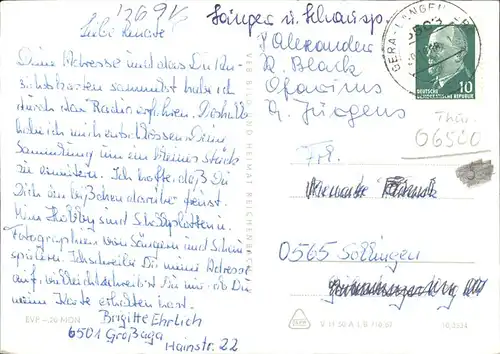 13691
Liebe Renate
Deine Adresse und das Du An-
sichtskarten sammelst hab ich
durch das Radio erfahren. Deshalb
hab ich mich entschlossen Deine
Sammlung um ein kleines stück
zu erweitern. Ich hoffe, daß Du
Dich ein bißchen darüber freust.
Mein Hobby sind Schallplatten u.
Fotographien von Sängern und Schau-
spielern. Ich schreibe Dir meine Adresse
auf, vielleicht schreibst Du mir, ob Du
meine Karte erhalten hast.
Brigitte Ehrlich
6501 Großaga
Hainstr. 22
EVP -,20 MDN
VEB BILD UND HEIMAT REICHENBACH
Sänger u. Schausp.
P. Alexander
R. Black
C. Jürgens
GERA-LANGENBERG
10
DEUTSCHE
DEMOKRATISCHE REPUBLIK
Thür.
06500
Frl.
0565 Söllingen
V 11 50 A 1 B